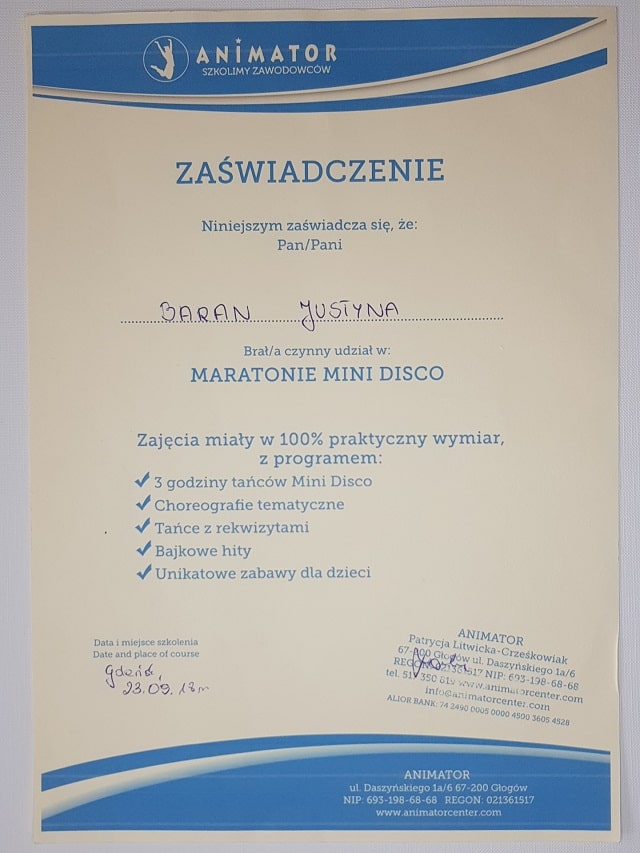 ANIMATOR
SZKOLIMY ZAWODOWCÓW
ZAŚWIADCZENIE
Niniejszym zaświadcza się, że:
Pan/Pani
BARAN JUSTYNA
Brał/a czynny udział w:
MARATONIE MINI DISCO
Zajęcia miały w 100% praktyczny wymiar,
z programem:
3 godziny tańców Mini Disco
Choreografie tematyczne
Tańce z rekwizytami
Bajkowe hity
Unikatowe zabawy dla dzieci
Data i miejsce szkolenia
Date and place of course
Gdańsk,
23.09.18r
ANIMATOR
Patrycja Litwicka-Cześkowiak
67-200 Głogów ul. Daszyńskiego 1a/6
REGON: 021361517 NIP: 693-198-68-68
tel. 819 www.animatorcenter.com
info@animatorcenter.com
ALIOR BANK: 74 2490 0005 0000 4500 3605 4528
ANIMATOR
ul. Daszyńskiego 1a/6 67-200 Głogów
NIP: 693-198-68-68 REGON: 021361517
www.animatorcenter.com